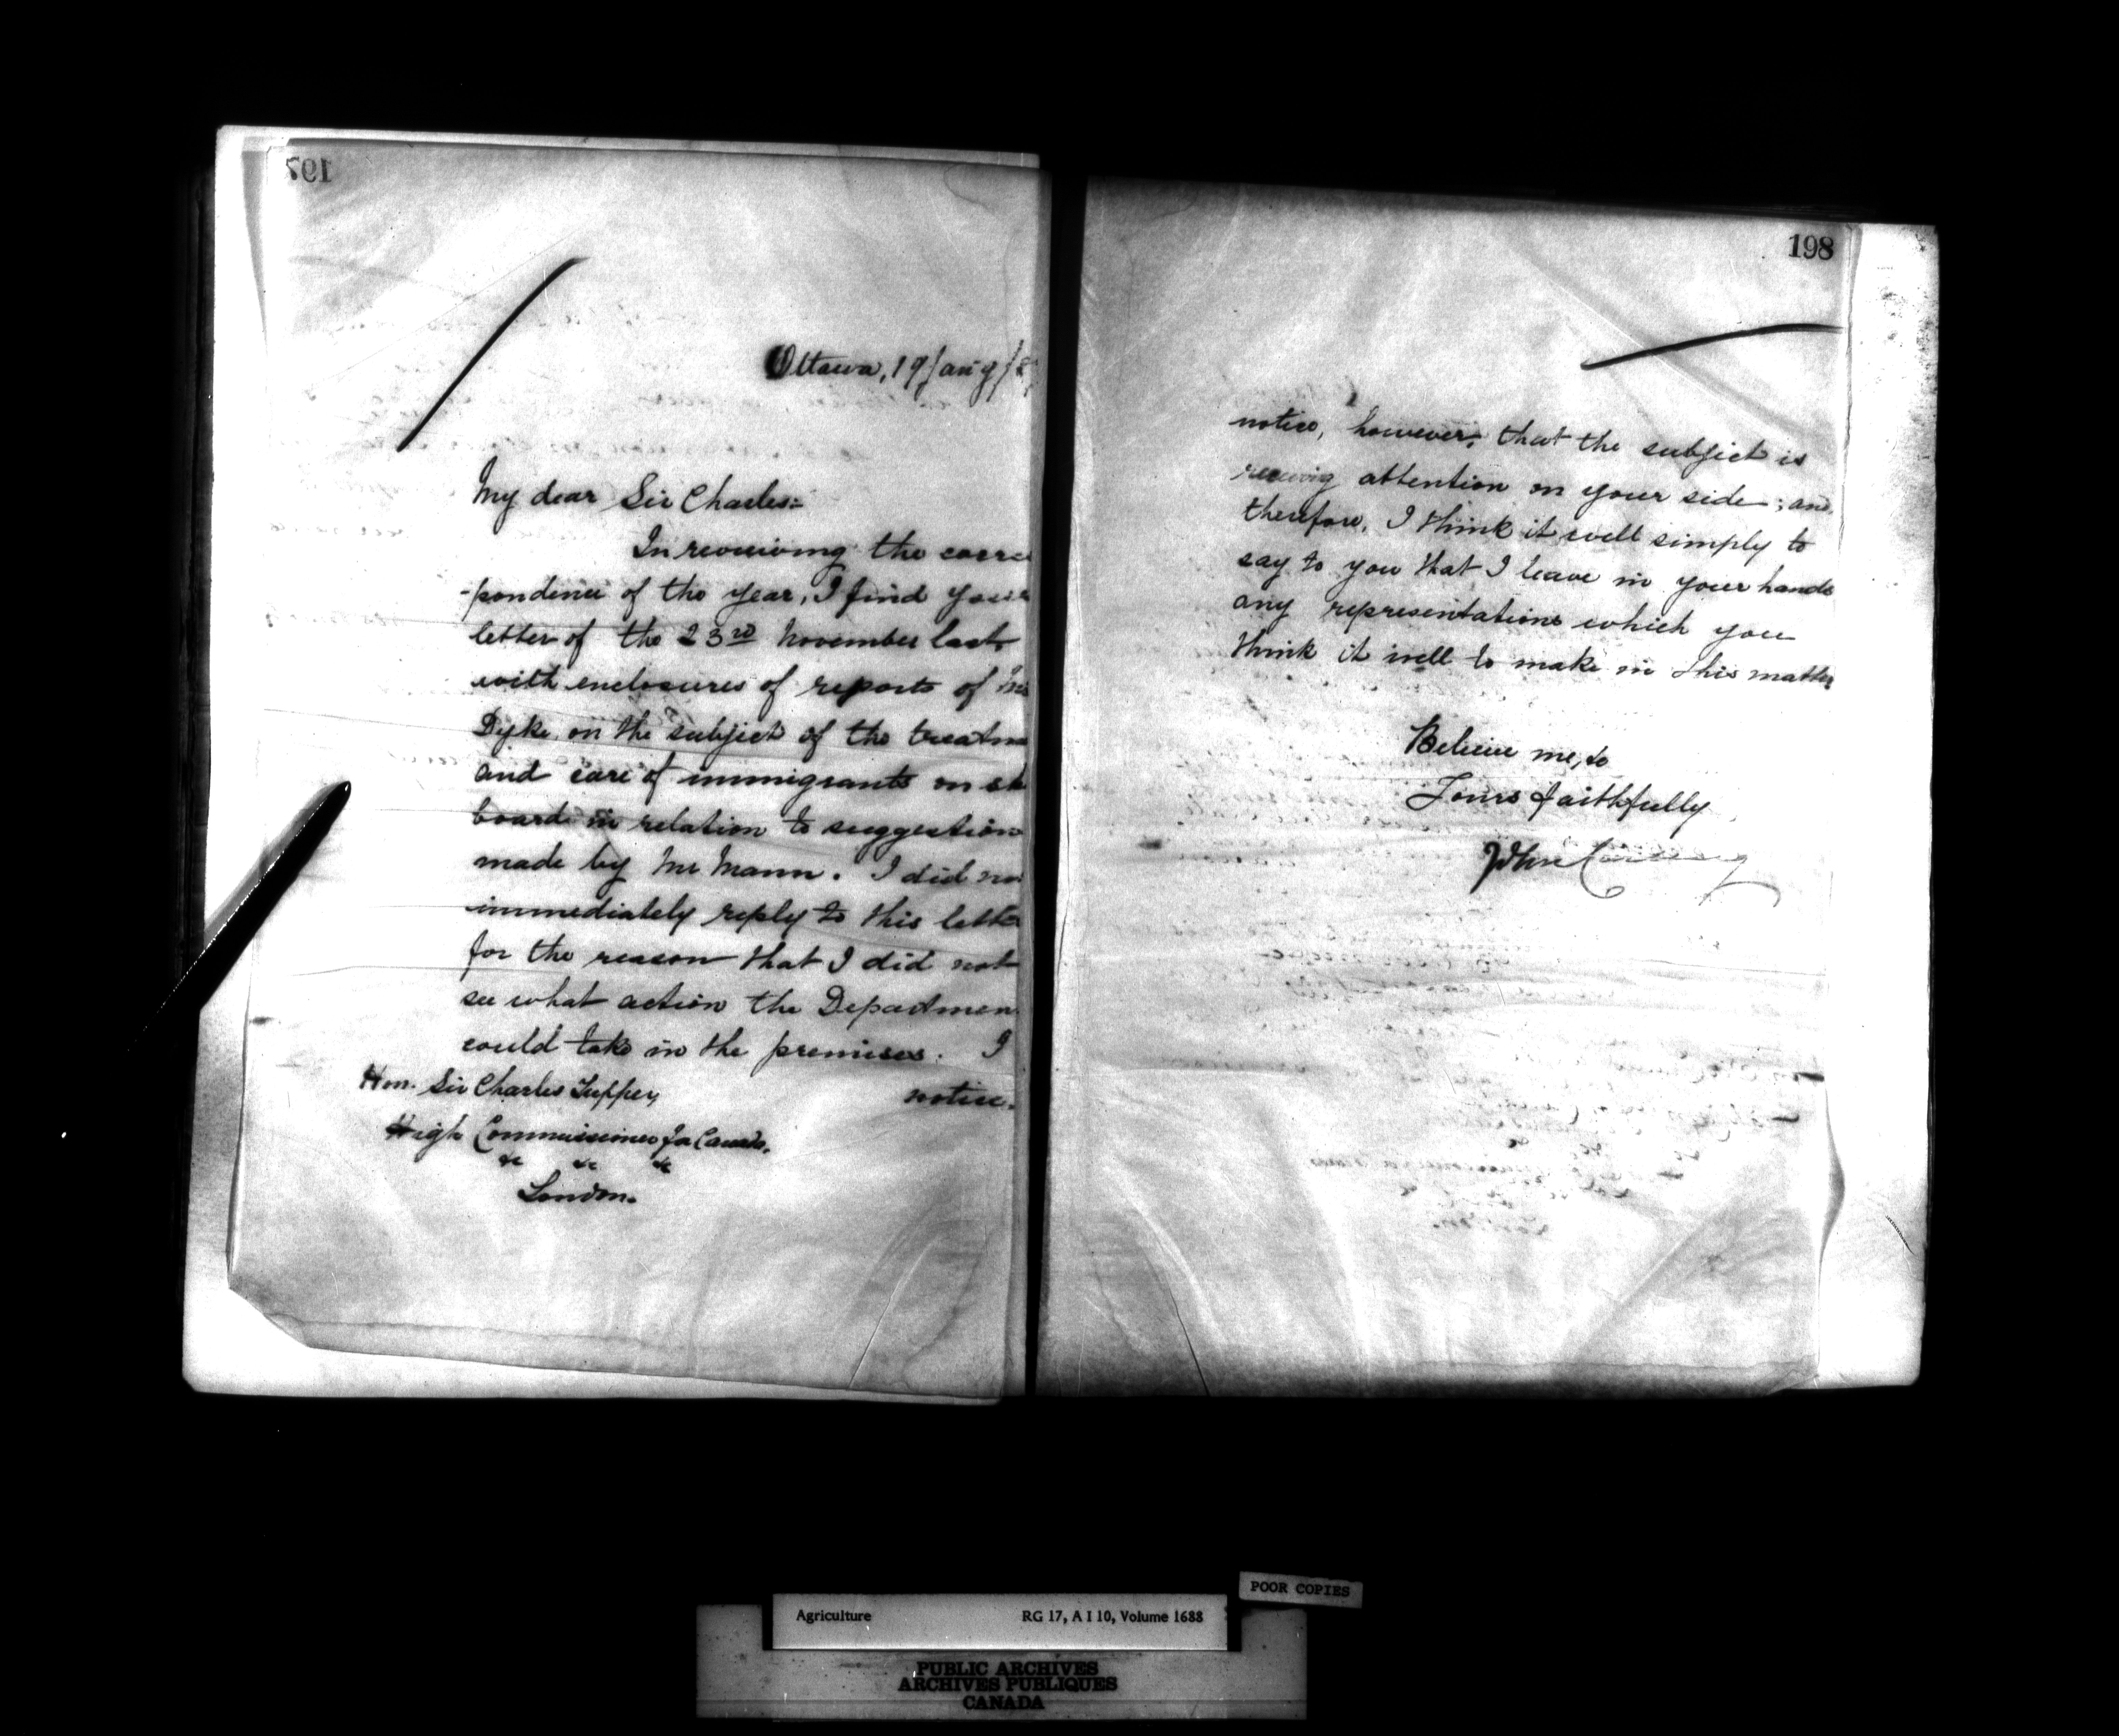 197
Ottawa, 19 Jan'y/8
My dear Sir Charles:-
In reveiwing the corre
-pondence of the year, I find your
letter of the 23rd November last
with enclosures of reports of Mr
Dyke on the subject of the treatme
and care of immigrants on sh
board in relation to suggestion
made by Mr Mann. I did no
immediately reply to this lette
for the reason that I did not
see what action the Departmen
could take in the premises. I
notice.
Hon. Sir Charles Tupper,
High Commissioner for Canada,
&c &c &c
London.
198
notice, however, that the subject is
receiving attention on your side; and
therefore, I think it well simply to
say to you that I leave in your hands
any representations which you
think it well to make in this matter
Believe me, to
Yours faithfully
John Carling
POOR COPIES
Agriculture RG 17, A I 10, Volume 1688
PUBLIC ARCHIVES
ARCHIVES PUBLIQUES
CANADA